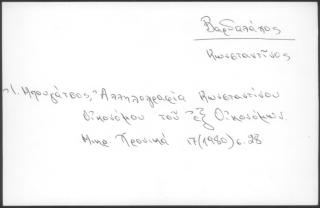 Βαρδαλάχος
Κωνσταντῖνος
Ι. Μπουγάτσος, Ἀλληλογραφία Κωνσταντίνου
Οἰκονόμου τοῦ ἐξ Οἰκονόμων.
Μικρ. Χρονικά 17 (1980) σ. 28